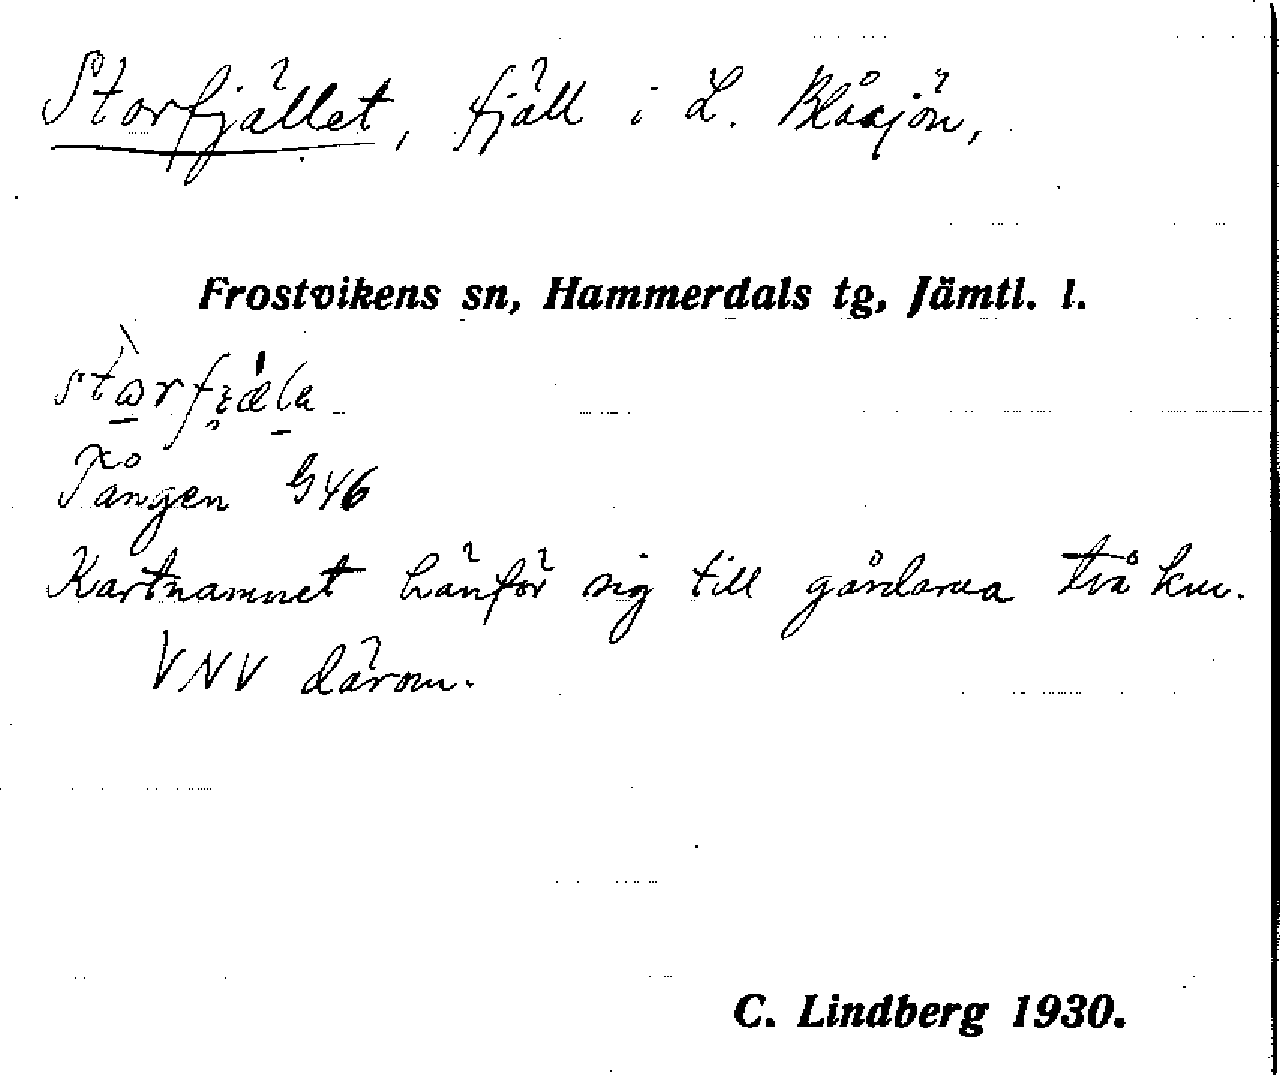 Storfjället, fjäll i L. Blåsjön,
Frostvikens sn, Hammerdals tg, Jämtl. l.
Tången G46
Kartnamnet hänför sig till gårdarna två km.
VNV därom.
C. Lindberg 1930.